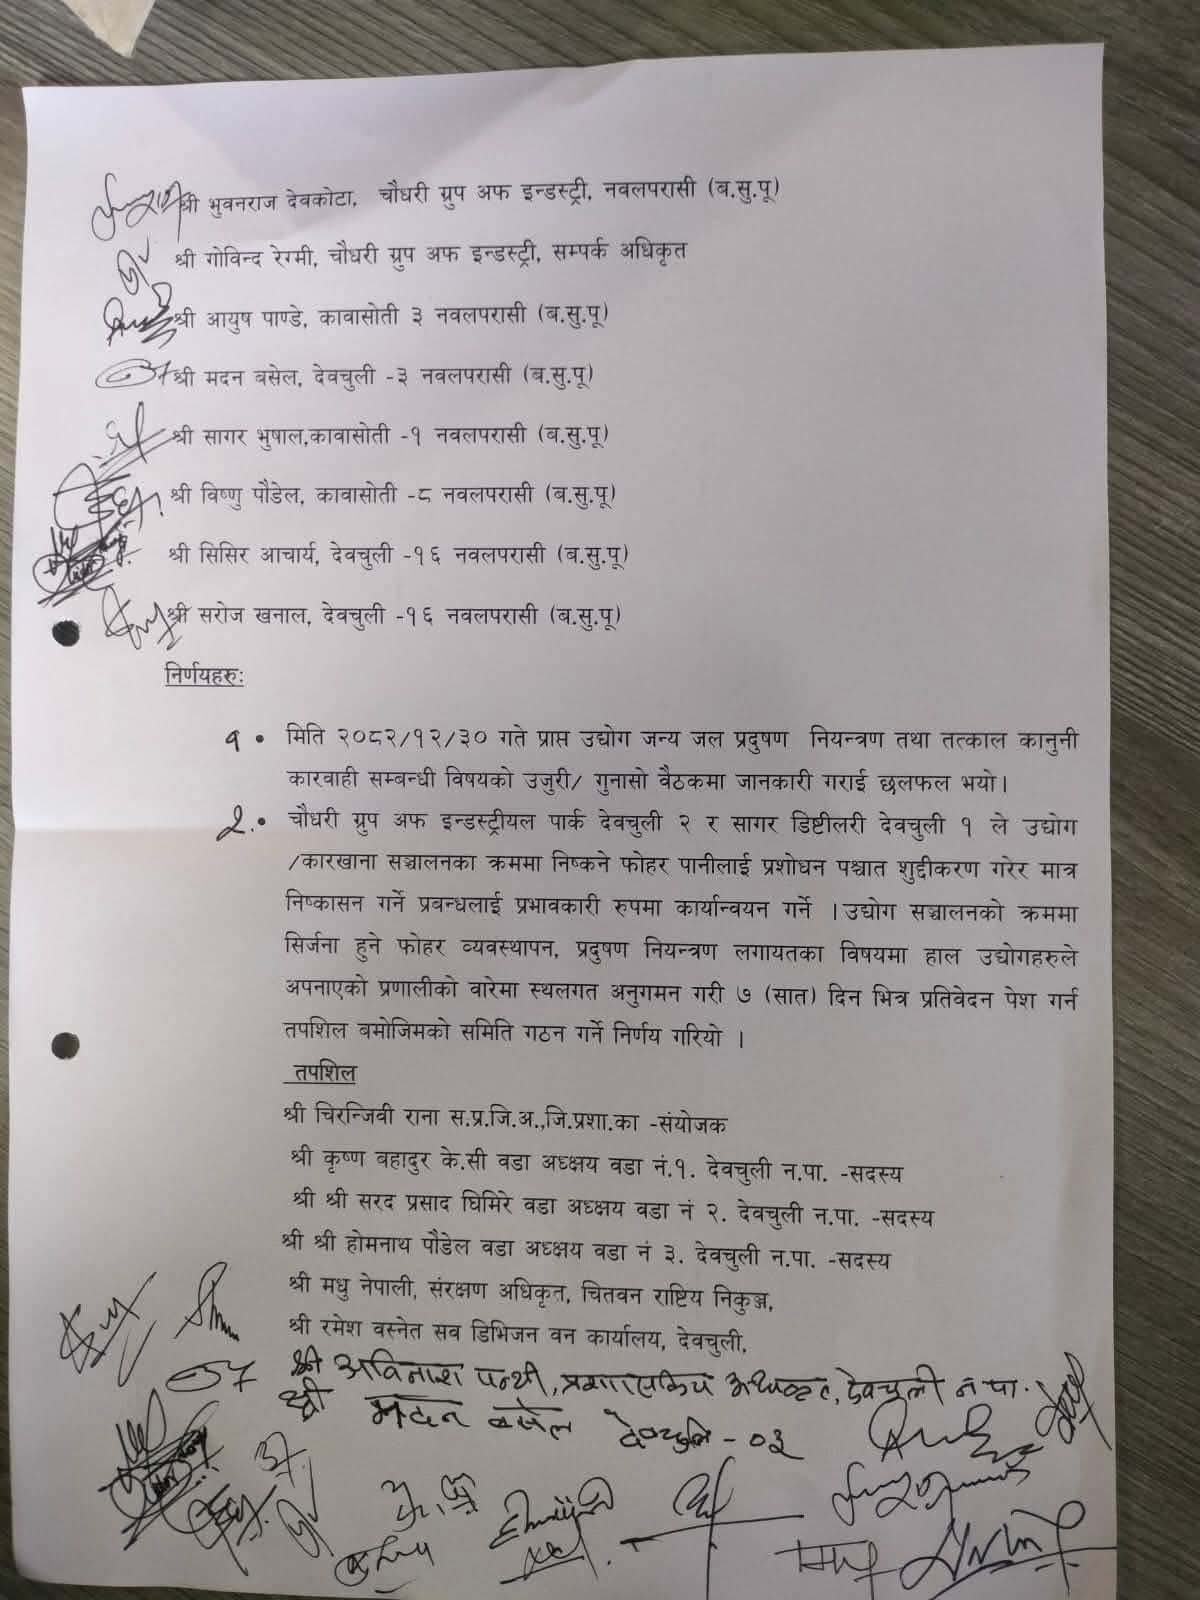 श्री भुवनराज देवकोटा, चौधरी ग्रुप अफ इन्डस्ट्री, नवलपरासी (ब.सु.पू)
श्री गोविन्द रेग्मी, चौधरी ग्रुप अफ इन्डस्ट्री, सम्पर्क अधिकृत
श्री आयुष पाण्डे, कावासोती ३ नवलपरासी (ब.सु.पू)
श्री मदन बसेल, देवचुली -३ नवलपरासी (ब.सु.पू)
श्री सागर भुषाल,कावासोती -१ नवलपरासी (ब.सु.पू)
श्री विष्णु पौडेल, कावासोती -८ नवलपरासी (ब.सु.पू)
श्री सिसिर आचार्य, देवचुली -१६ नवलपरासी (ब.सु.पू)
श्री सरोज खनाल, देवचुली -१६ नवलपरासी (ब.सु.पू)
निर्णयहरु:
१ • मिति २०८२/१२/३० गते प्राप्त उद्योग जन्य जल प्रदुषण नियन्त्रण तथा तत्काल कानुनी
कारवाही सम्बन्धी विषयको उजुरी/ गुनासो वैठकमा जानकारी गराई छलफल भयो।
2. • चौधरी ग्रुप अफ इन्डस्ट्रीयल पार्क देवचुली २ र सागर डिष्टीलरी देवचुली १ ले उद्योग
/कारखाना सञ्चालनका क्रममा निष्कने फोहर पानीलाई प्रशोधन पश्चात शुद्दीकरण गरेर मात्र
निष्कासन गर्ने प्रबन्धलाई प्रभावकारी रुपमा कार्यान्वयन गर्ने । उद्योग सञ्चालनको क्रममा
सिर्जना हुने फोहर व्यवस्थापन, प्रदुषण नियन्त्रण लगायतका विषयमा हाल उद्योगहरुले
अपनाएको प्रणालीको वारेमा स्थलगत अनुगमन गरी ७ (सात) दिन भित्र प्रतिवेदन पेश गर्न
तपशिल बमोजिमको समिति गठन गर्ने निर्णय गरियो ।
तपशिल
श्री चिरन्जिवी राना स.प्र.जि.अ.,जि.प्रशा.का -संयोजक
श्री कृष्ण बहादुर के.सी वडा अध्क्षय वडा नं.१. देवचुली न.पा. -सदस्य
श्री श्री सरद प्रसाद घिमिरे वडा अध्क्षय वडा नं २. देवचुली न.पा. -सदस्य
श्री श्री होमनाथ पौडेल वडा अध्क्षय वडा नं ३. देवचुली न.पा. -सदस्य
श्री मधु नेपाली, संरक्षण अधिकृत, चितवन राष्टिय निकुञ्ज,
श्री रमेश वस्नेत सव डिभिजन वन कार्यालय, देवचुली,
श्री अविनाश पन्थी, प्रशासकिय अधिकृत, देवचुली न.पा.
श्री मदन बसेल देवचुली - ०३